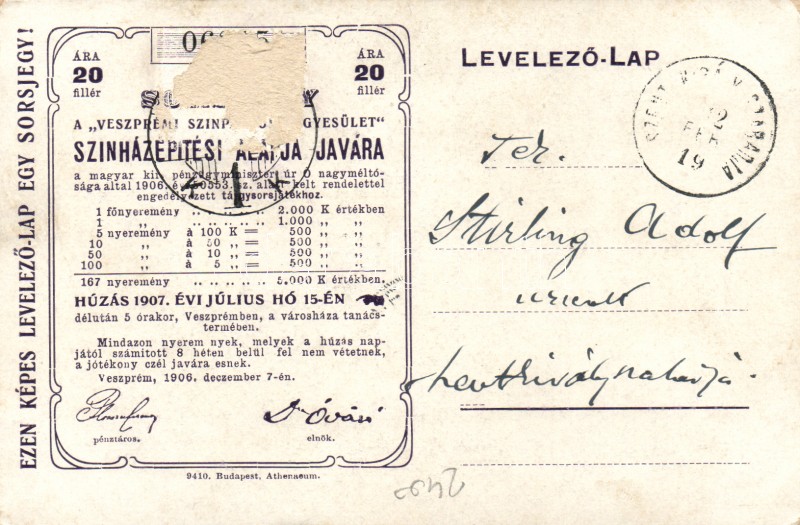 EZEN KÉPES LEVELEZŐ-LAP EGY SORSJEGY!
ÁRA
20
fillér
ÁRA
20
fillér
A „VESZPRÉMI
SZINHÁZÉPÍTÉSI ALAPJA JAVÁRA
a magyar kir. pénzügyminiszter úr Ő nagyméltó-
sága által 1906. sz. alatt kelt rendelettel
engedélyezett tárgysorsjátékhoz.
1 főnyeremény .. .. .. .. .. 2.000 K értékben
1 „ .. .. .. .. .. 1.000 „ „
5 nyeremény à 100 K = 500 „ „
10 „ à 50 „ = 500 „ „
50 „ à 10 „ = 500 „ „
100 „ à 5 „ = 500 „ „
167 nyeremény .. .. .. .. 5.000 K értékben.
HÚZÁS 1907. ÉVI JÚLIUS HÓ 15-ÉN
délután 5 órakor, Veszprémben, a városháza tanács-
termében.
Mindazon nyerem nyek, melyek a húzás nap-
jától számított 8 héten belül fel nem vétetnek,
a jótékony czél javára esnek.
Veszprém, 1906. deczember 7-én.
Dr Óvári
pénztáros.
elnök.
9410. Budapest, Athenaeum.
LEVELEZŐ-LAP
19
Stirling Adolf